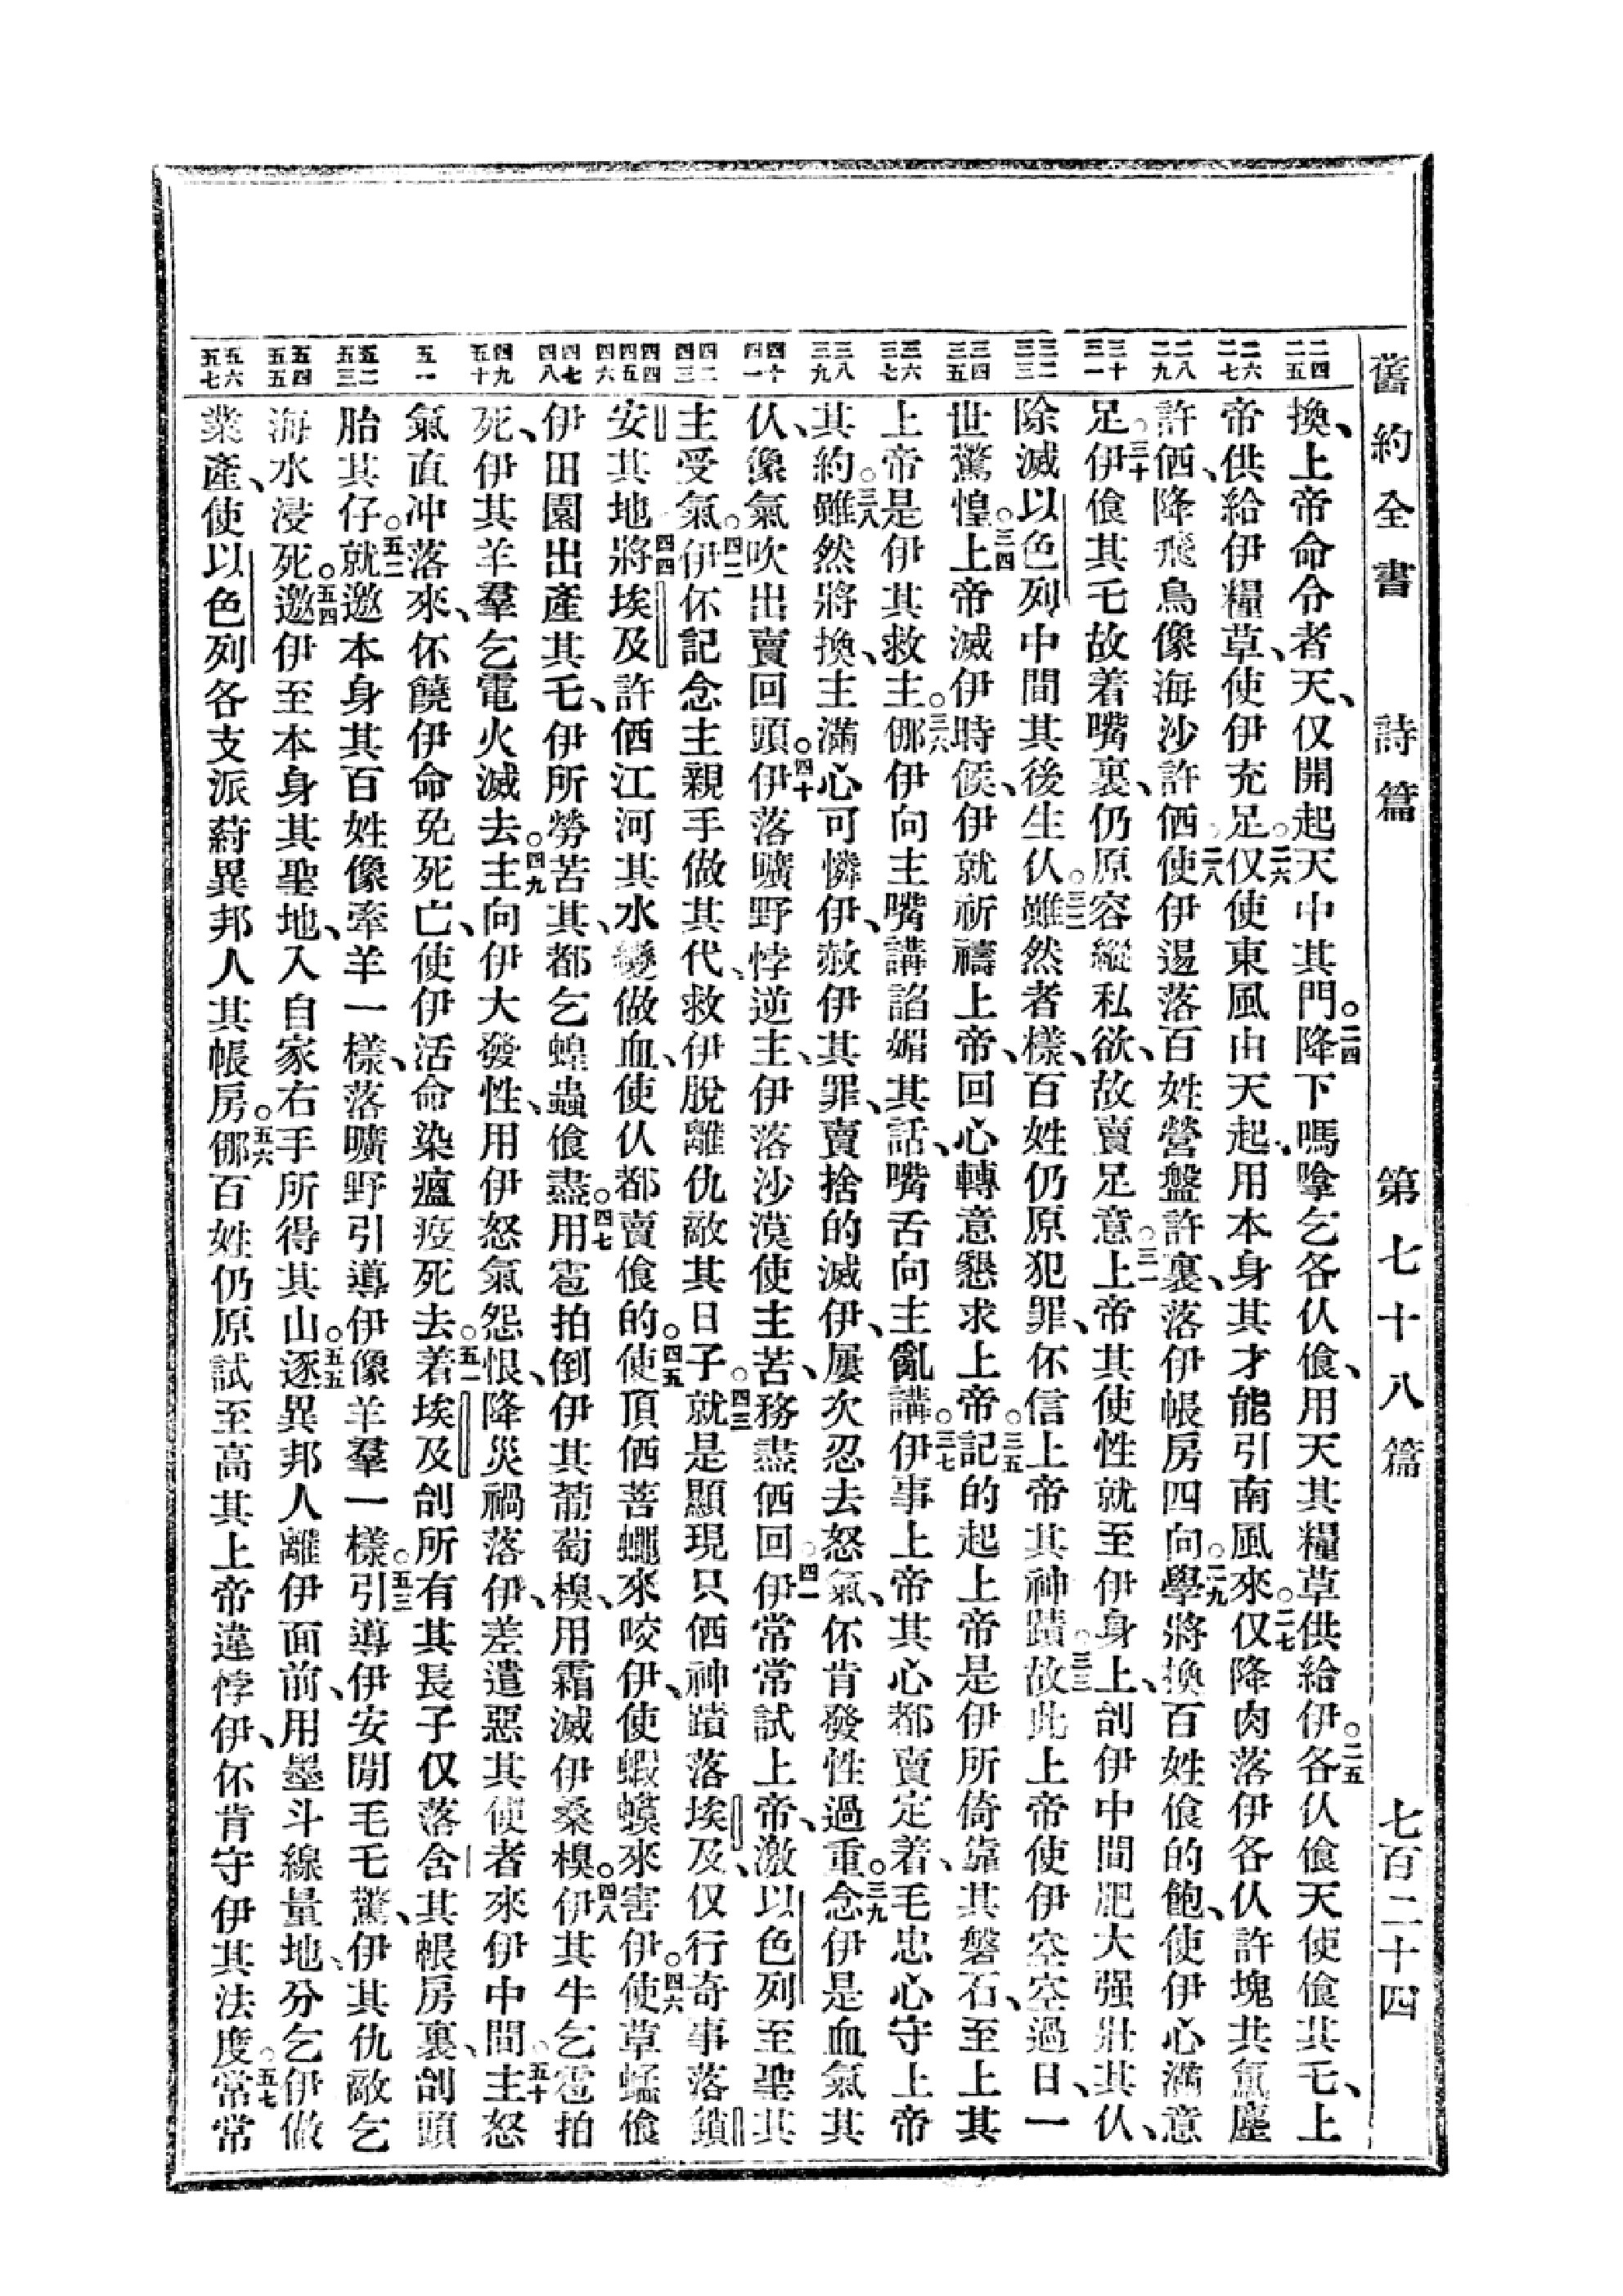 舊約全書 詩篇 第七十八篇 七百二十四
二四 二五
換、上帝命令者天、仅開起天中其門。二四降下嗎嗱乞各仈飡、用天其糧草供給伊。二五各仈飡天使飡其乇、上
二六 二七
帝供給伊糧草、使伊充足。二六仅使東風由天起、用本身其才能引南風來。二七仅降肉落伊各仈許塊共氭塵
二八 二九
許𠵽、降飛鳥像海沙許𠵽。二八使伊逿落百姓營盤許裏、落伊帳房四向。二九學將換百姓飡的飽、使伊心滿意
三十 三一
足。三十伊飡其乇故着嘴裏、仍原容縱私欲、故賣足意。三一上帝其使性就至伊身上、剖伊中間肥大强壯其仈、
三二 三三
除滅以色列中間其後生仈。三二雖然者樣、百姓仍原犯罪、伓信上帝其神蹟。三三故此上帝使伊空空過日、一
三四 三五
世驚惶。三四上帝滅伊時候、伊就祈禱上帝、回心轉意懇求上帝。三五記的起上帝是伊所倚靠其磐石、至上其
三六 三七
上帝是伊其救主。三六㑚伊向主嘴講諂媚其話、嘴舌向主亂講。三七伊事上帝其心都賣定着、毛忠心守上帝
三八 三九
其約。三八雖然將換、主滿心可憐伊、赦伊其罪、賣捨的滅伊、屢次忍去怒氣、伓肯發性過重。三九念伊是血氣其
四十 四一
仈、像氣吹出賣回頭。四十伊落曠野悖逆主、伊落沙漠使主苦、務盡𠵽回。四一伊常常試上帝、激以色列至聖其
四二 四三
主受氣。四二伊伓記念主親手做其代、救伊脫離仇敵其日子。四三就是顯現只𠵽神蹟落埃及、仅行奇事落鎖
四四 四五 四六
安其地。四四將埃及許𠵽江河其水變做血、使仈都賣飡的。四五使頂𠵽菩蠅來咬伊、使蝦蟆來害伊。四六使草蜢飡
四七 四八
伊田園出產其乇、伊所勞苦其、都乞蝗蟲飡盡。四七用雹拍倒伊其葡萄模、用霜滅伊桑模。四八伊其牛乞雹拍
四九 五十
死、伊其羊羣乞電火滅去。四九主向伊大發性、用伊怒氣怨恨、降災禍落伊、差遣惡其使者來伊中間。五十主怒
五一
氣直冲落來、伓饒伊命免死亡、使伊活命染瘟疫死去。五一着埃及刣所有其長子、仅落含其帳房裏、刣頭
五二 五三
胎其仔。五二就邀本身其百姓像牽羊一樣、落曠野引導伊像羊羣一樣。五三引導伊安閒毛乇驚、伊其仇敵乞
五四 五五
海水浸死。五四邀伊至本身其聖地、入自家右手所得其山。五五逐異邦人離伊面前、用墨斗線量地、分乞伊做
五六 五七
業產、使以色列各支派蒞異邦人其帳房。五六㑚百姓仍原試至高其上帝、違悖伊、伓肯守伊其法度。五七常常